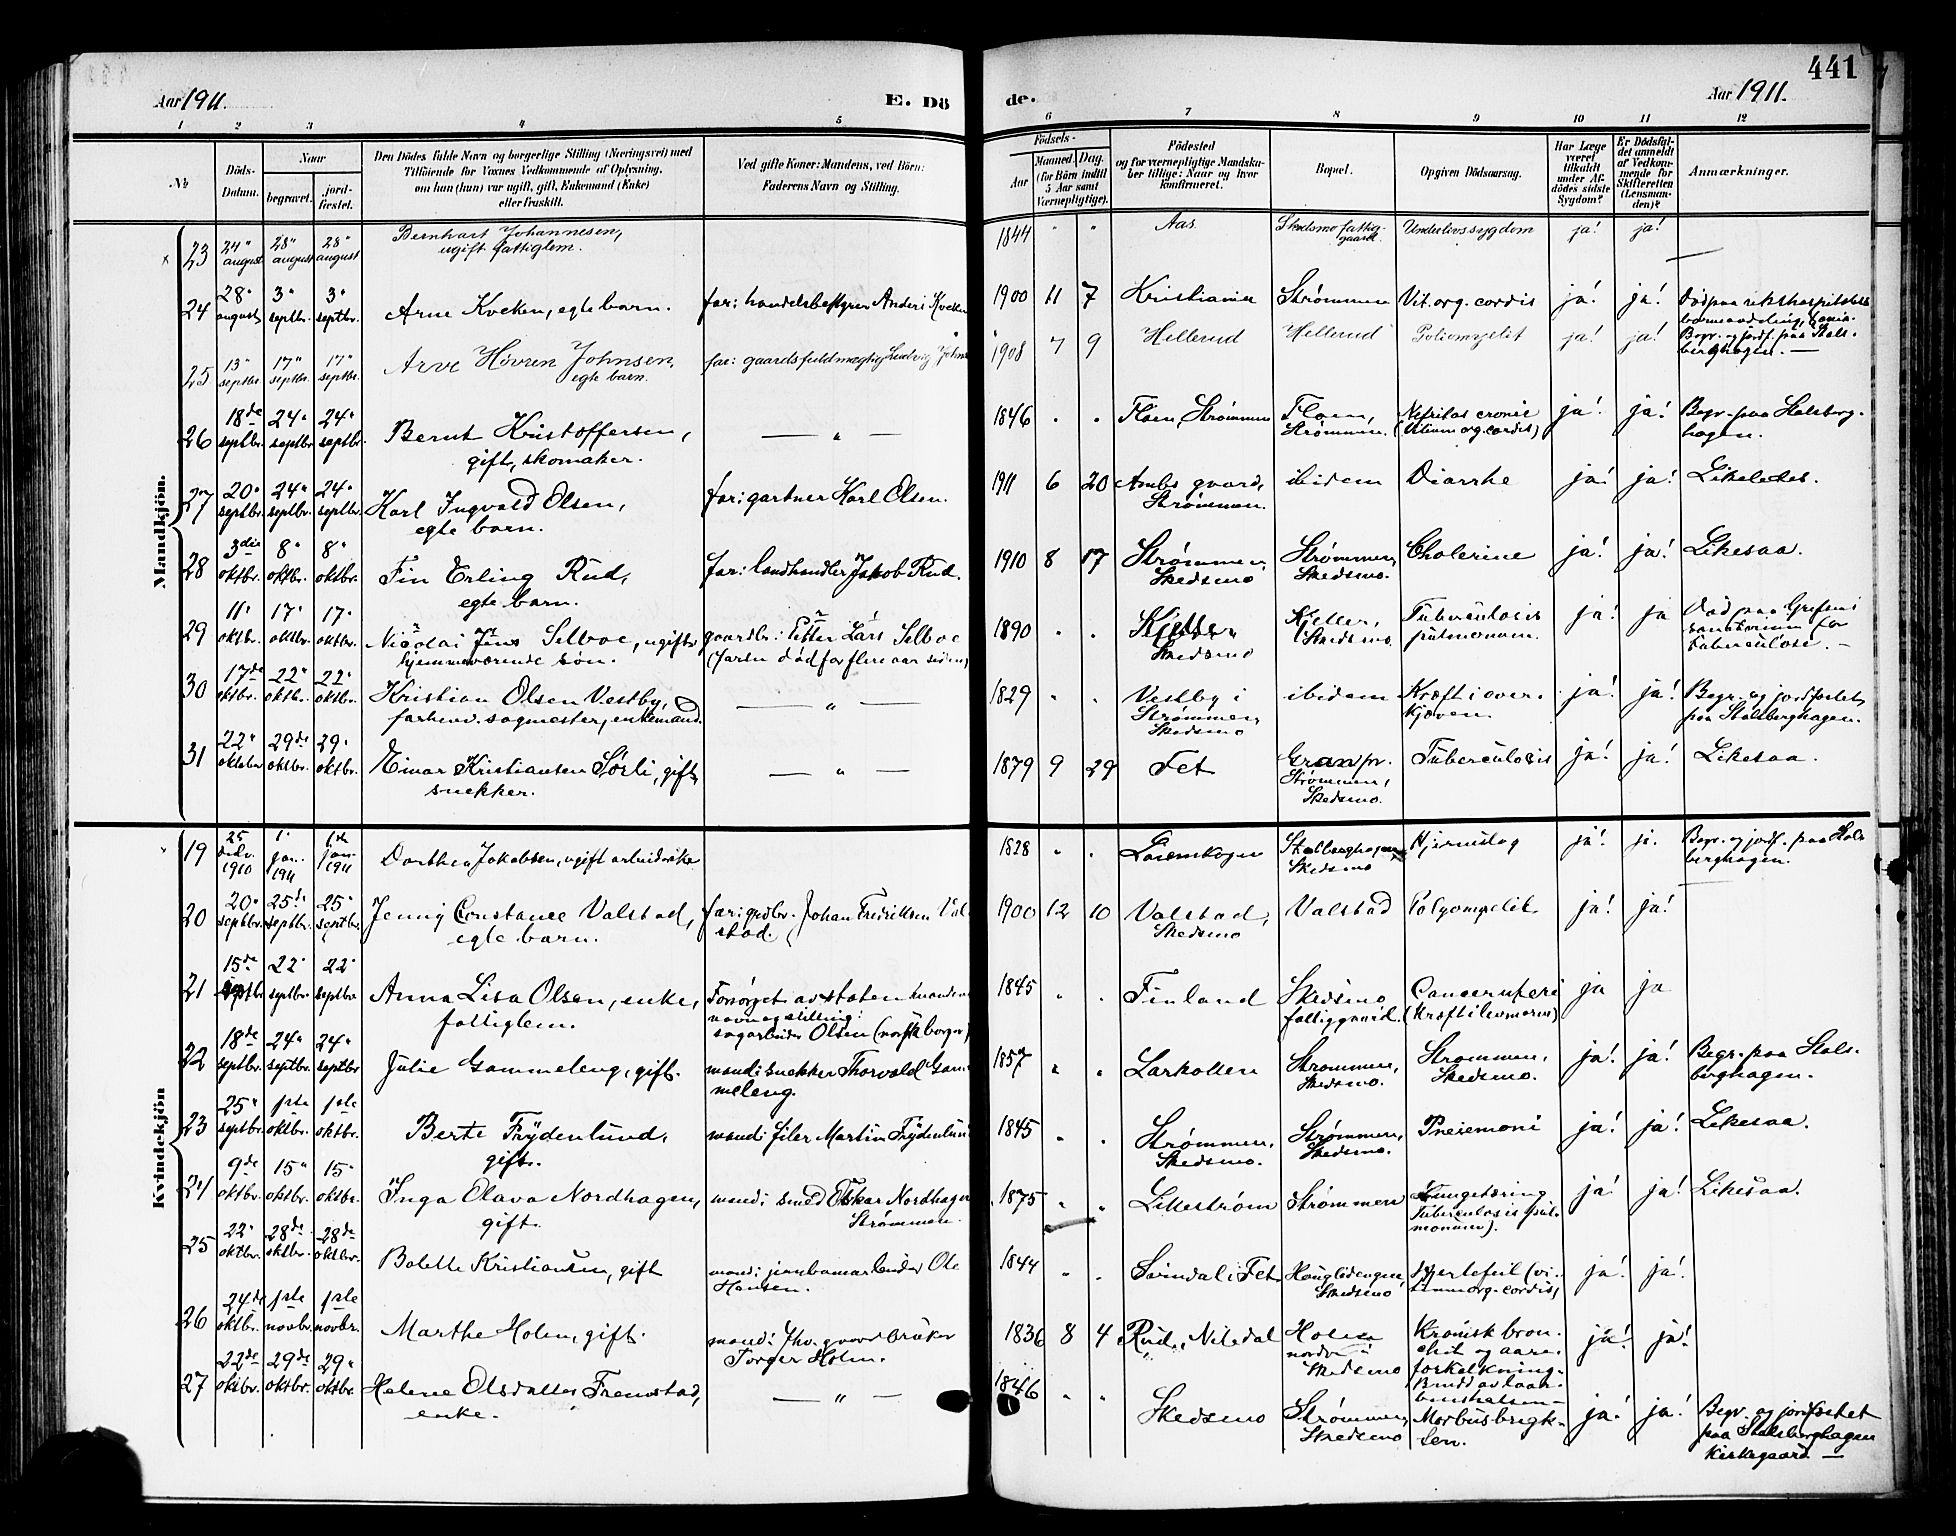 441
Aar 1911.
E. Dö
de.
Aar 1911.
1 2 3 4 5 6 7 8 9 10 11 12
No
Döds-
Datum.
Naar
begravet.
jord-
festet.
Den Dödes fulde Navn og borgerlige Stilling (Næringsvei) med
Tilföiende for Voxnes Vedkommende af Oplysning,
om hun (han) var ugift, gift, Enkemand (Enke)
eller fraskilt.
Ved gifte Koner: Mandens, ved Börn:
Faderens Navn og Stilling.
Födsels-
Aar
Maaned. Dag.
(for Börn indtil
5 Aar samt
Værnepligtige).
Födested
og for værnepligtige Mandska-
ber tillige: Naar og hvor
konfirmeret.
Bopæl.
Opgiven Dödsaarsag.
Har Læge
været
tilkaldt
under Af-
dödes sidste
Sygdom?
Er Dödsfal-
det anmeldt
af Vedkom-
mende for
Skifteretten
(Lensman-
den)?
Anmærkninger.
Mandkjön.
23
24" august
28" august
28" august
Bernhart Johannesen,
ugift fattiglem.
1844 " "
Aas
Skedsmo fattig-
gaard.
Underlivssygdom
ja! ja!
24
28" august
3" septbr.
3" septbr.
Arne Kveken, egte barn.
far: handelsbestyrer Anders Kveken
1900 11 7
Kristiania
Strømmen
Vit. org. cordis
ja! ja!
Död paa rikshospitalets
25
13" septbr.
17" septbr.
17" septbr.
Arve Höyren Johnsen,
egte barn.
far: gaardsfuldmægtig Ludvig Johns
1908 7 9
Hellerud
Hellerud
Poliomyelit
ja! ja!
Begr. og jordf. paa Stals-
berghagen. —
26
18de septbr.
24" septbr.
24" septbr.
Bernt Kristoffersen,
gift, skomaker.
— " —
1846 " "
Floen, Strømmen
Floen,
Strømmen.
Nefritas cronic
(Vitium org. cordis)
ja! ja!
Begr. paa Stalsberg-
hagen.
27
20" septbr.
24" septbr.
24" septbr.
Karl Ingvald Olsen,
egte barn.
far: gartner Karl Olsen.
1911 6 20
Ambs gaard,
Strømmen.
ibidem
Diarrhe
ja! ja!
Likeledes.
28
3die oktbr.
8" oktbr.
8" oktbr.
Fin Erling Rud,
egte barn.
far: landhandler Jakob Rud.
1910 8 17
Strømmen,
Skedsmo
Strømmen,
Skedsmo.
Cholerine
ja! ja!
Likesaa.
29
11" oktbr.
17" oktbr.
17" oktbr.
Nicolai Jens Selboe, ugift,
hjemmeværende søn.
gaardbr. Petter Lars Selboe
(faren död for flere aar siden)
1890 " "
Kjeller,
Skedsmo
Kjeller,
Skedsmo.
Tuberculosis
pulmonum.
ja! ja
Död paa Grefsens
sanatorium for
tuberculose. —
30
17de oktbr.
22" oktbr.
22" oktbr.
Kristian Olsen Vestby,
forhenv. sagmester, enkemand.
— " —
1829 " "
Vestby i
Strømmen,
Skedsmo
ibidem
Kræft i over-
kjæven.
ja! ja!
Begr. og jordfestet
paa Stalsberghagen.
31
22" oktober
29de oktbr.
29" oktbr.
Einar Kristiansen Sørli, gift,
snekker.
— " —
1879 9 29
Fet
Gran pr.
Strømmen,
Skedsmo.
Tuberculosis
ja! ja!
Likesaa.
Kvindekjön
19
25 1910
1" jan. 1911
1ste jan. 1911
Dorthea Jakobsen, ugift arbeiderske
1828 " "
Lørenskogen
Stalsberghagen,
Skedsmo
Hjerneslag
ja! ja.
Begr. og jordf. paa Stals
berghagen.
20
20" septbr.
25de septbr.
25" septbr.
Jenny Constance Valstad,
egte barn.
far: grdbr. Johan Fredriksen Val
stad.
1900 12 10
Valstad,
Skedsmo
Valstad
Polyompelit
ja! ja!
21
15de septbr.
22" septbr.
22" septbr.
Anna Lisa Olsen, enke,
fattiglem.
Forsørget av staten mandens
navn og stilling:
sagarbeider Olsen (norsk borger)
1845 " "
Finland
Skedsmo
fattiggaard.
Cancer uteri
(Kræft i livmoren)
ja ja
22
18de septbr.
24" septbr.
24" septbr.
Julie Gammeleng, gift.
mand: snekker Thorvald Gam
meleng.
1857 " "
Larkollen
Strømmen,
Skedsmo.
Strømmen,
Skedsmo.
ja! ja!
Begr. paa Stals-
berghagen.
23
25" septbr.
1ste oktbr.
1ste oktbr.
Berte Frydenlund,
gift.
mand: filer Martin Frydenlund
1845 " "
Strømmen,
Skedsmo.
Strømmen,
Skedsmo.
Pneiemoni
ja! ja!
Likesaa.
24
9de oktbr.
15" oktbr.
15" oktbr.
Inga Olava Nordhagen,
gift.
mand: smed Oskar Nordhagen
Strømmen.
1875 " "
Lillestrøm
Strømmen
Lungetæring
Tuberculosis pul-
monum).
ja! ja!
Likesaa.
25
22" oktbr.
28de oktbr.
28de oktbr.
Bolette Kristiansen, gift
mand: jernbanearbeider Ole
Hansen.
1844 " "
Svindal i Fet
Haugliengen,
Skedsmo
Hjertefeil (vi-
tium org. cordis)
ja! ja!
26
24de oktbr.
1ste novbr.
1ste novbr.
Marthe Holm, gift.
mand: fhv. gaardbruker
Torger Holm.
1836 8 4
Rud, Nitedal
Holm
nordre i
Skedsmo
Kronisk bron-
chit og aare-
forkalkning-
Brudd av laar-
benshalsen—
ja! ja!
27
22de oktbr.
29de oktbr.
29" oktbr.
Helene Olsdatter Fremstad,
enke.
— " —
1846 " "
Skedsmo
Strømmen,
Skedsmo
Morbus brigk-
ten.
ja! ja!
Begr. og jordfestet
paa Stalsberghagen
kirkegaard. —